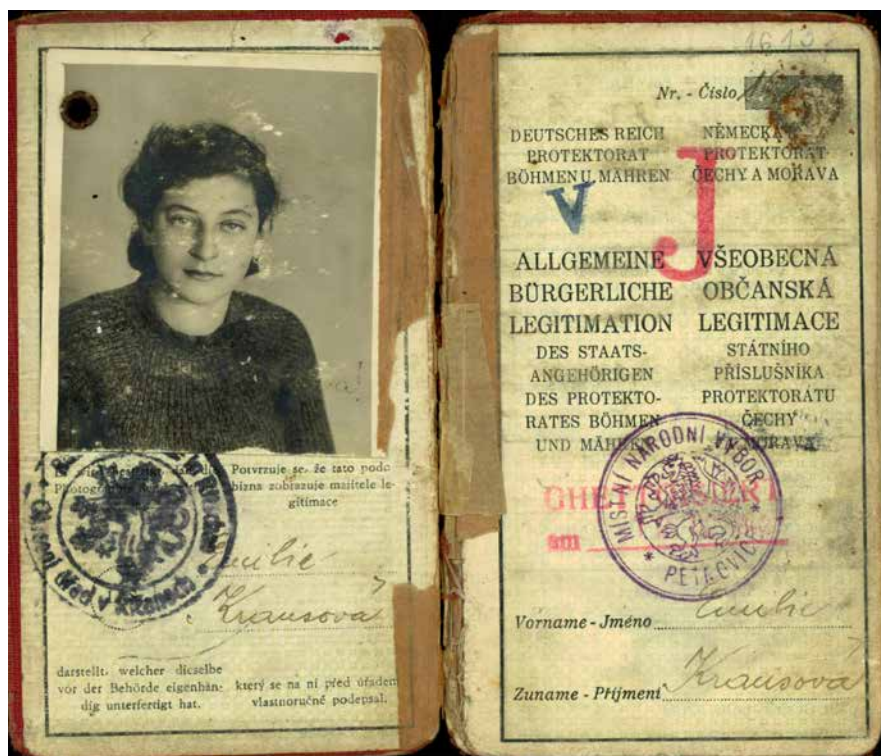 Potvrzuje se, že tato podo
bizna zobrazuje majitele le-
gitimace
Emilie
Krausová
darstellt, welcher dieselbe
vor der Behörde eigenhän-
dig unterfertigt hat.
který se na ní před úřadem
vlastnoručně podepsal.
1613
Nr. - Číslo
DEUTSCHES REICH
PROTEKTORAT
BÖHMEN U. MÄHREN
NĚMECKÁ
PROTEKTORÁT
ČECHY A MORAVA
V
J
ALLGEMEINE
BÜRGERLICHE
LEGITIMATION
DES STAATS-
ANGEHÖRIGEN
DES PROTEKTO-
RATES BÖHMEN
UND MÄHREN
VŠEOBECNÁ
OBČANSKÁ
LEGITIMACE
STÁTNÍHO
PŘÍSLUŠNÍKA
PROTEKTORÁTU
ČECHY
A MORAVA
MÍSTNÍ NÁRODNÍ VÝBOR
GHETTOISIERT
am
Vorname - Jméno Emilie
Zuname - Příjmení Krausová